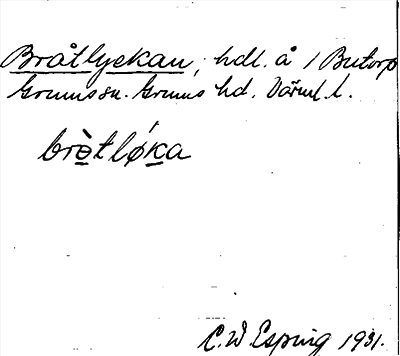 Bråtlyckan, hdl. å 1 Butorp
Grums sn. Grums hd. Värml. l.
brὰtløka
C. W Esping 1931.